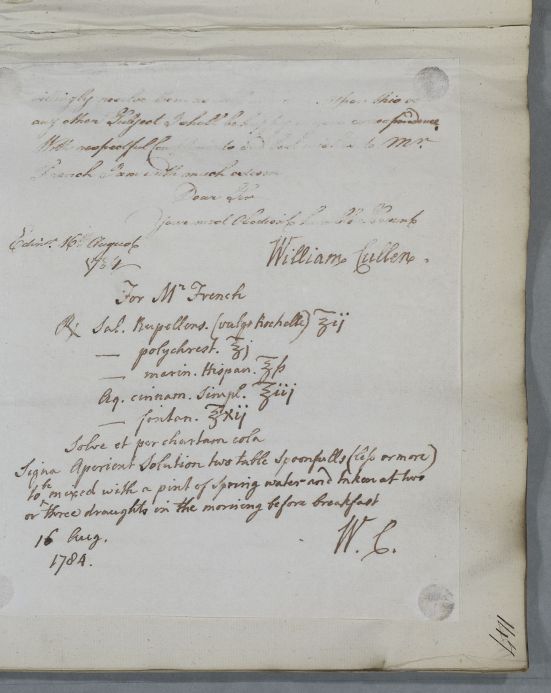 any other Subject I shall be happy correspondence
With respectful to Mr.
French I am with much esteem
Dear Sir
Your most Obedient humble Servant
Edinr. 16 August
1784
William Cullen.
For Mr French
℞ Sal. Rupellens. (vulgo Rochelle) ℥ij
— polychrest. ℥j
— marin. Hispan. ℥ß
Aq. cinnam. Simpl. ℥iij
— fontan. ℥xij
Solve et per chartam cola
Signa Aperient Solution two table Spoonfulls (less or more)
to be mixed with a pint of Spring water and taken at two
or three draughts in the morning before breakfast
16 Aug.
W. C.
1784.